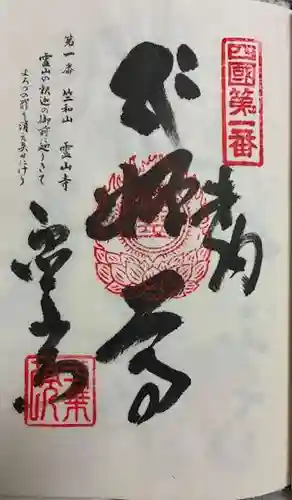 四國第一番
奉納
霊山寺
第一番　竺和山　霊山寺
霊山の釈迦の御前に巡りきて
よろづの罪も消え失せにけり